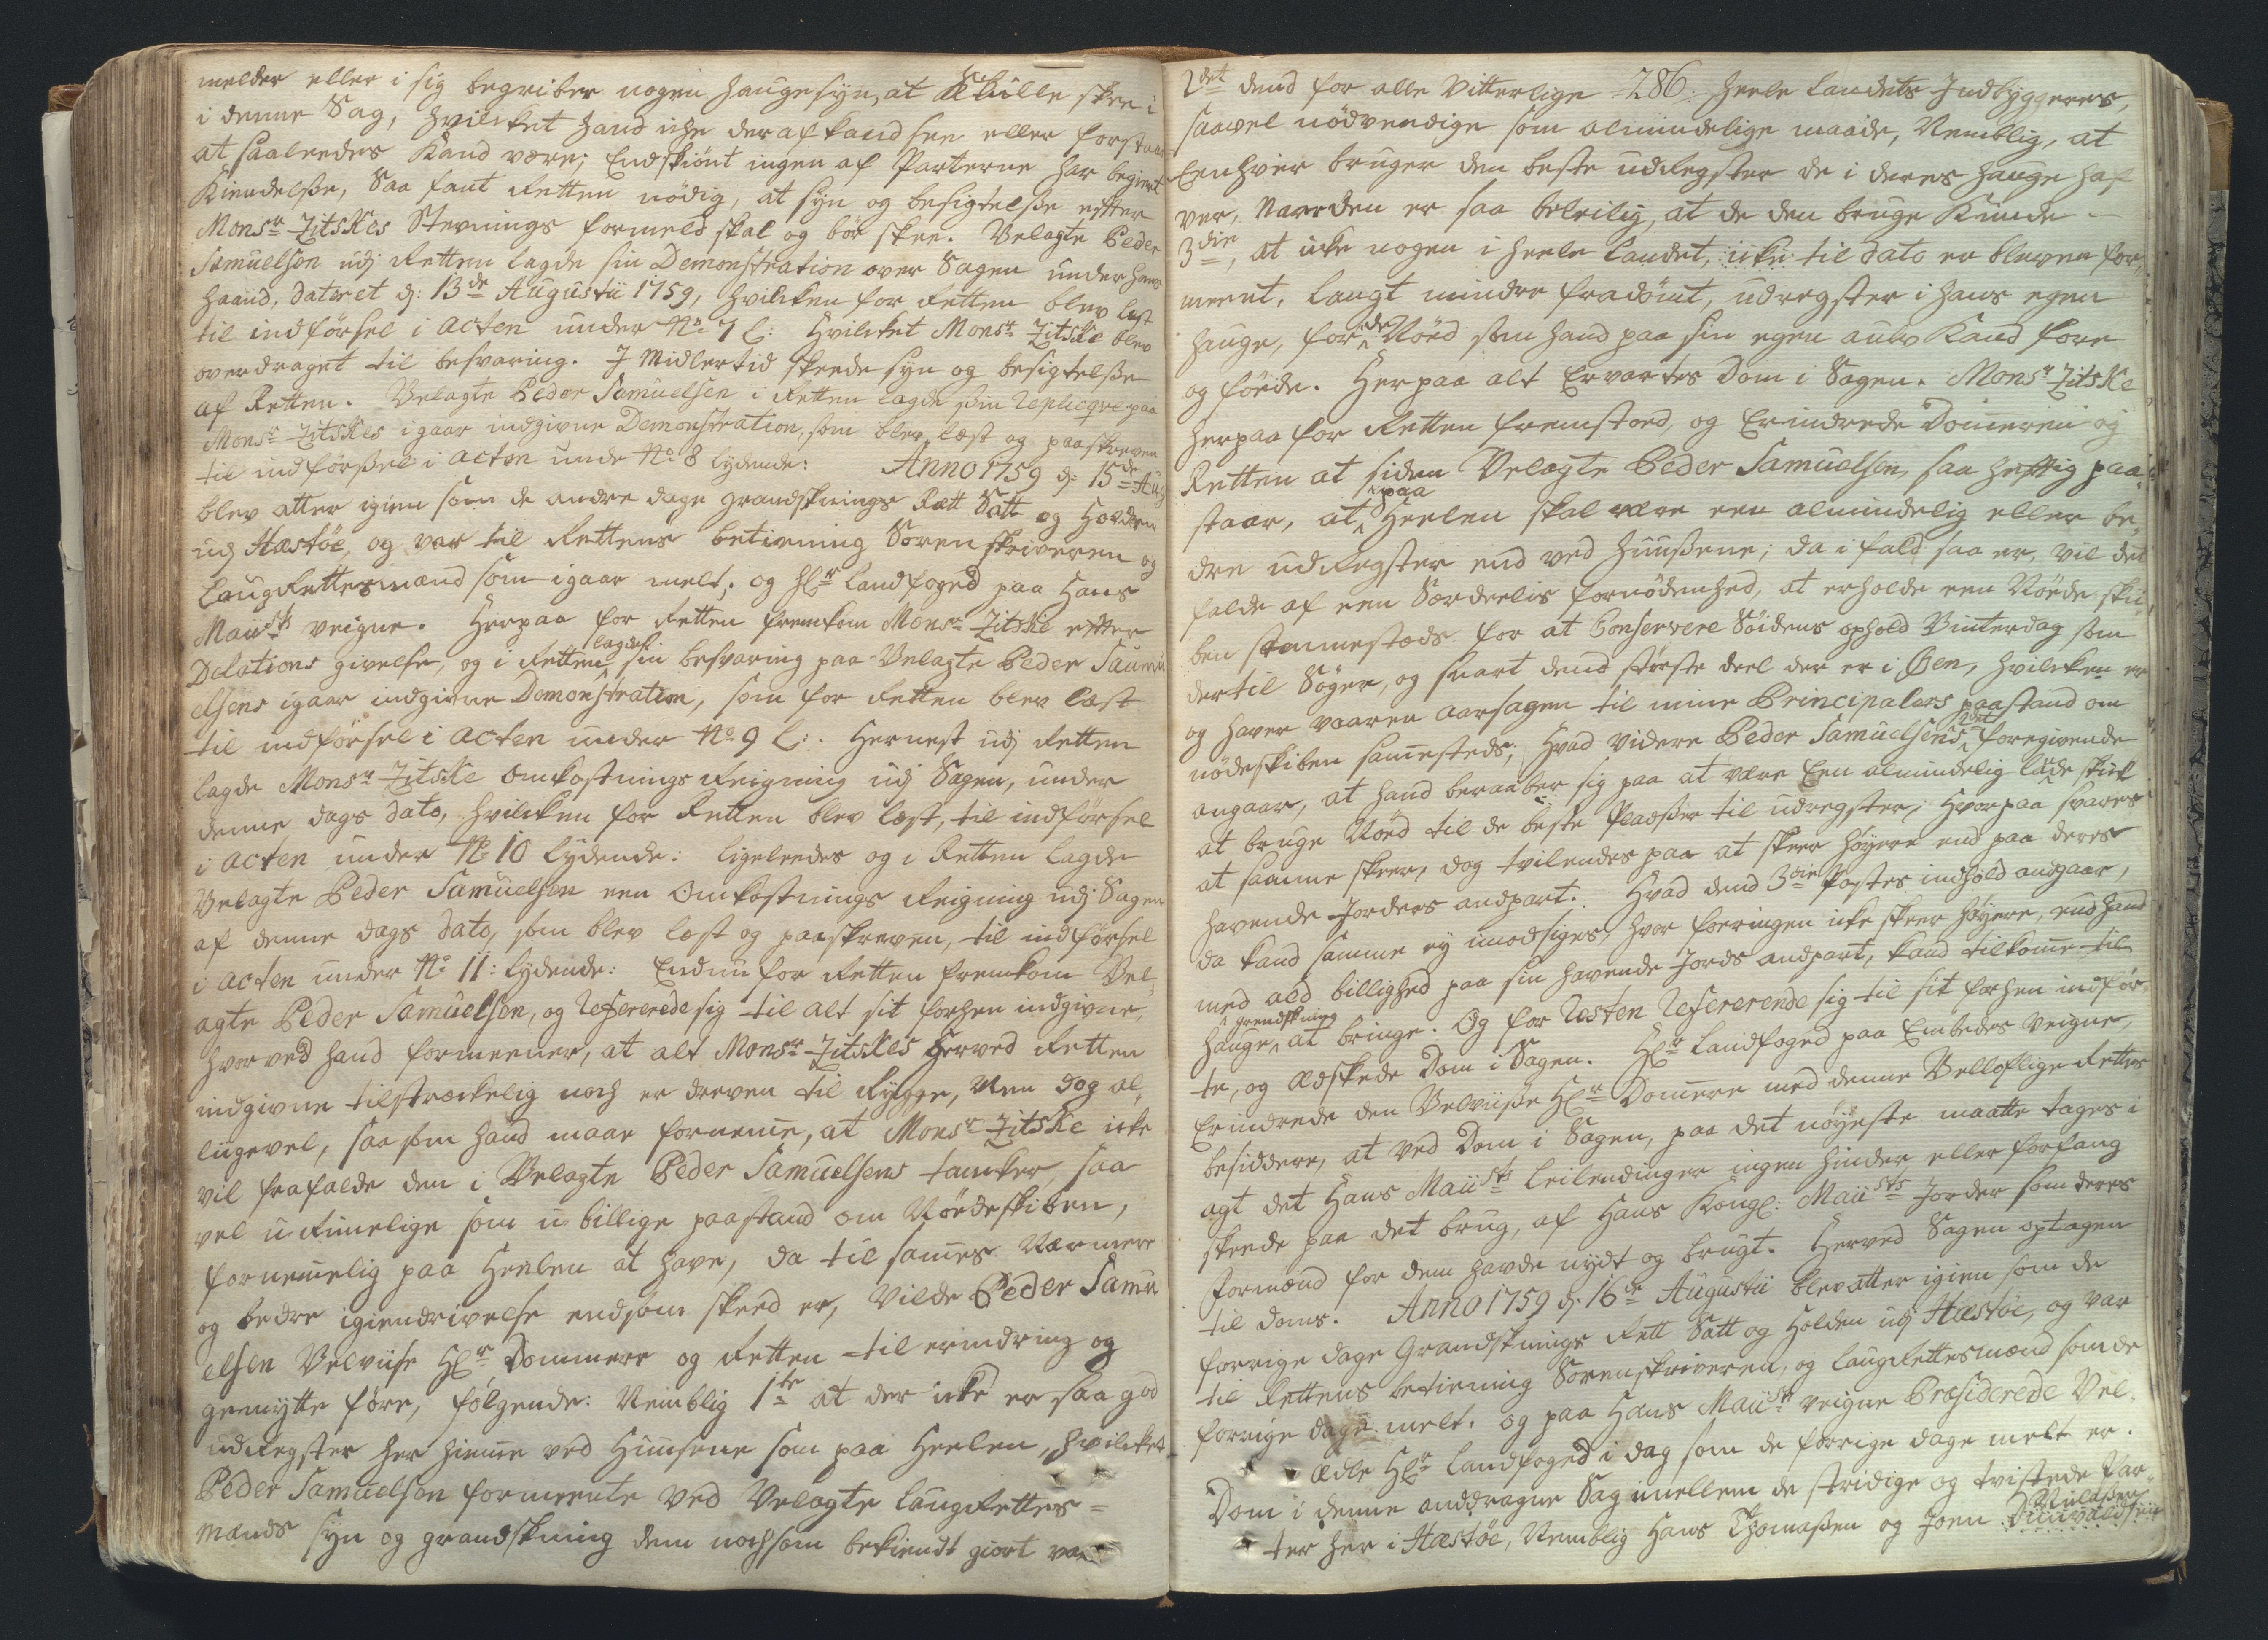 melder eller i sig begriber nogen haugesyn, at skulle skee i
i denne Sag, hvilcket hand icke deraf kand see eller forstaae
at saaleedes kand være; Endskiönt ingen af Parterne har begiert
Kiendelsse, Saa fant Retten nödig, at syn og besigtelsse efter
Monsr Zitskes Stevnings formeld skal og bör skee. Velagte Peder
Samuelsen udj Retten lagde sin Demonstration over Sagen under hans
haand, dateret d: 13de Augustii 1759, hvilcken for Retten blev læst
til indförsel i acten under No 7 l: Hvilcket Monsr Zitske blev
overdraget til besvaring. J Midlertid skeede syn og besigtelsse
af Retten. Velagte Peder Samuelsen i Retten lagde sin Replicqve paa
Monsr Zitskes igaar indgivne Demonstration, som blev læst og paaskreven
til indförssel i acten unde No 8 lydende: Anno 1759 d: 15de Aug
blev atter igien som de andre dage grandsknings Rett Satt og Holden
udj Hæstöe, og var til Rettens betiening Sorenskriveren og
LaugRettesmænd som igaar melt; og Hlr Landfoged paa Hans
Maiisti veigne. Herpaa for Retten fremkom Monsr Zitske efter
Delations givelse, og i Retten lagde sin besvaring paa Velagte Peder Samu
elsens igaar indgivne Demonstration, som for Retten blev læst
til indförsel i acten under No 9 l:. Hernest udj Retten
lagde Monsr Zitske Omkostnings Reigning udj Sagen, under
denne dags dato, hvilcken for Retten blev læst, til indförsel
i acten under No 10 lydende: ligeleedes og i Retten lagde
Velagte Peder Samuelsen een Omkostnings Reigning udj Sagen
af denne dags dato, som blev læst og paaskreven, til indförsel
i acten under No 11: lydende: Endnu for Retten fremkom Vel,
agte Peder Samuelsen, og Refererede sig til alt sit forhen indgivne,
hvorved hand formeener, at alt Monsr Zitskes herved Retten
indgivne tilstrækkelig noch er dreven til Rygge, Men dog al,
liigevel, saasom hand maae fornemme, at Monsr Zitske icke
vil frafalde den i Velagte Peder Samuelsens tancker, saa
vel uRimelige som ubillige paastand om Nöedeskiben,
fornemmelig paa Heelen at have, da til sammes Nærmere
og bedre igiendrivelse endsom skeed er, Vilde Peder Samu
elsen Velviise Hlr Dommere og Retten til erindring og
gemytte före, fölgende: Nemblig 1te at der icke er saa god
udRegster her hiemme ved Huusene som paa Heelen, hvilcket
Peder Samuelsen formeente ved Velagte LaugRettes=
mænds syn og grandskning dem nochsom bekiendt giort var
2det dend for alle Vitterlige 286. heele Landets Indbyggeres,
saavel nödvendige som almindelige maade, Nemblig, at
Eenhver bruger den beste udRegster de i deres hauge haf
ver, Naar den er saa beleilig, at de den bruge kunde.
3die, at icke nogen i heele Landet, icke til dato er bleven for,,
meent, langt mindre fradömt, udregster i hans egen
hauge, for de Nöed som hand paa sin egen aulv kand före
og föede. Herpaa alt Ervartes Dom i Sagen. Monsr Zitske
herpaa for Retten fremstoed, og Erindrede Dommeren og
Retten at siden Velagte Peder Samuelsen, saa heftig paa,,
staar, at paa Heelen skal være een almindelig eller be,
dre udRegster end ved huussene; da i fald saa er, vil det
falde af een Særdeelis fornödenhed, at erholde een Nöede ski
ben sammesteds for at Conservere Söidens ophold Vinterdag som
dertil Söger, og snart dend störste deel der er i Öen, hvilcken er
og haver vaaren aarsagen til mine Principalers paastand om
nödeskiben sammesteds; Hvad videre Peder Samuelsens 2det foregivende
angaar, at hand beraaber sig paa at være Een almindelig skick
at bruge Nöed til de beste Pladsser til udregster; Hvorpaa svares
at samme skeer, dog tvilendes paa at skeer höyere end paa deres
havende Jorders andpart. Hvad dend 3die Postes indhold angaar,
da kand samme ey imodsiges, hvor foeringen icke skeer höyere, end hand
med ald billighed paa sin havende Jords andpart, kand tilkomme til
hauge grendskning at bringe. Og for Resten Refererende sig til sit forhen indför,
te, og Ædskede Dom i Sagen. Hlr Landfoged paa Embedes Veigne,
Erindrede den Velviisse Hlr Dommere med denne Velloflige Rettes
besiddere, at ved Dom i Sagen, paa det nöyeste maatte tages i
agt det Hans Maiisti Leilendinger ingen hinder eller forfang
skeede paa det brug, af Hans Kongl: Maiists Jorder som deres
Formænd for dem havde nydt og brugt. Herved Sagen optagen
til doms. Anno 1759 d: 16de Augustii blev atter igien som de
forrige dage Grandsknings Rett Satt og Holden udj Hæstöe, og var
til Rettens betiening Sorenskriveren, og LaugRettesmænd som de
forrige dage melt. og paa Hans Maiisti veigne Præsiderede Vel,
ædle Hlr Landfoged i dag som de forrige dage melt er.
Dom i denne anddragne Sag imellem de stridige og tvistede Par,,
ter her i Hæstöe, Nemblig Hans Thomassen og Joen